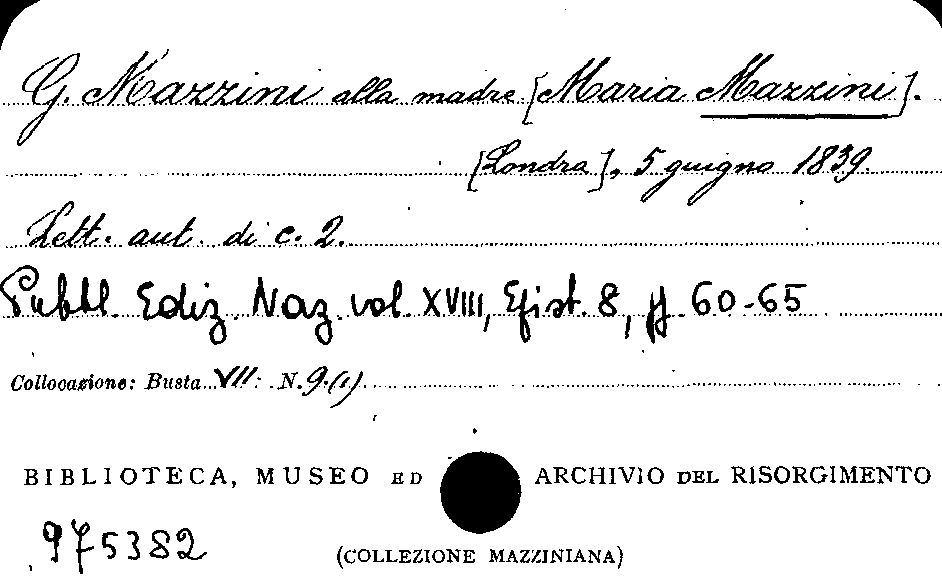 G. Mazzini alla madre [Maria Mazzini].
[Londra], 5 giugno 1839.
Lett. aut. di c. 2.
Pubbl. Ediz. Naz. vol. XVIII, Epist. 8, pp. 60-65
Collocazione: Busta VII: N. 9.(1)
BIBLIOTECA, MUSEO ED ARCHIVIO DEL RISORGIMENTO
975382
(COLLEZIONE MAZZINIANA)